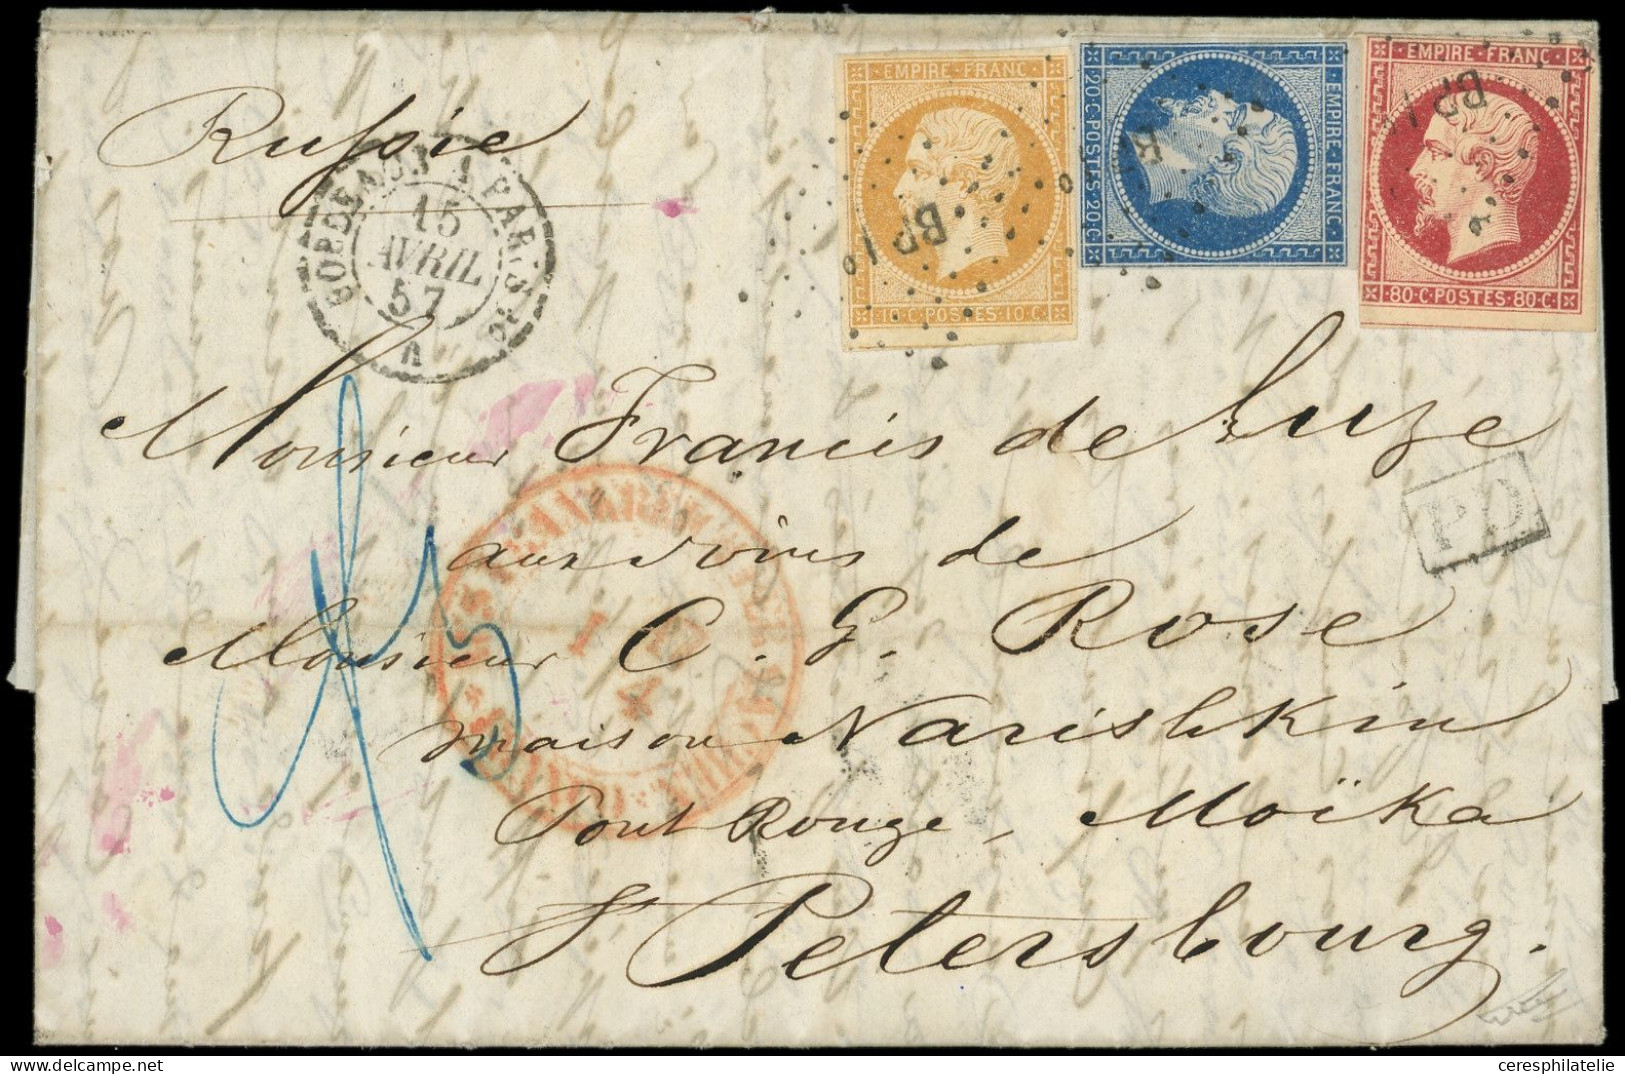 Russie
BORDEAUX A PARIS
15
AVRIL
57
A
EMPIRE · FRANC
BP1°
10·C·POSTES·10·C·
EMPIRE·FRANC
20·C·POSTES·20·C
EMPIRE·FRANC
BP1
80·C·POSTES·80·C·
PD
Monsieur Francis de Luze
aux soins de
Monsieur C. G. Rose
maison Narishkin
Pont Rouge, Moïka
St Petersbourg.
delcampe.net
ceresphilatelie